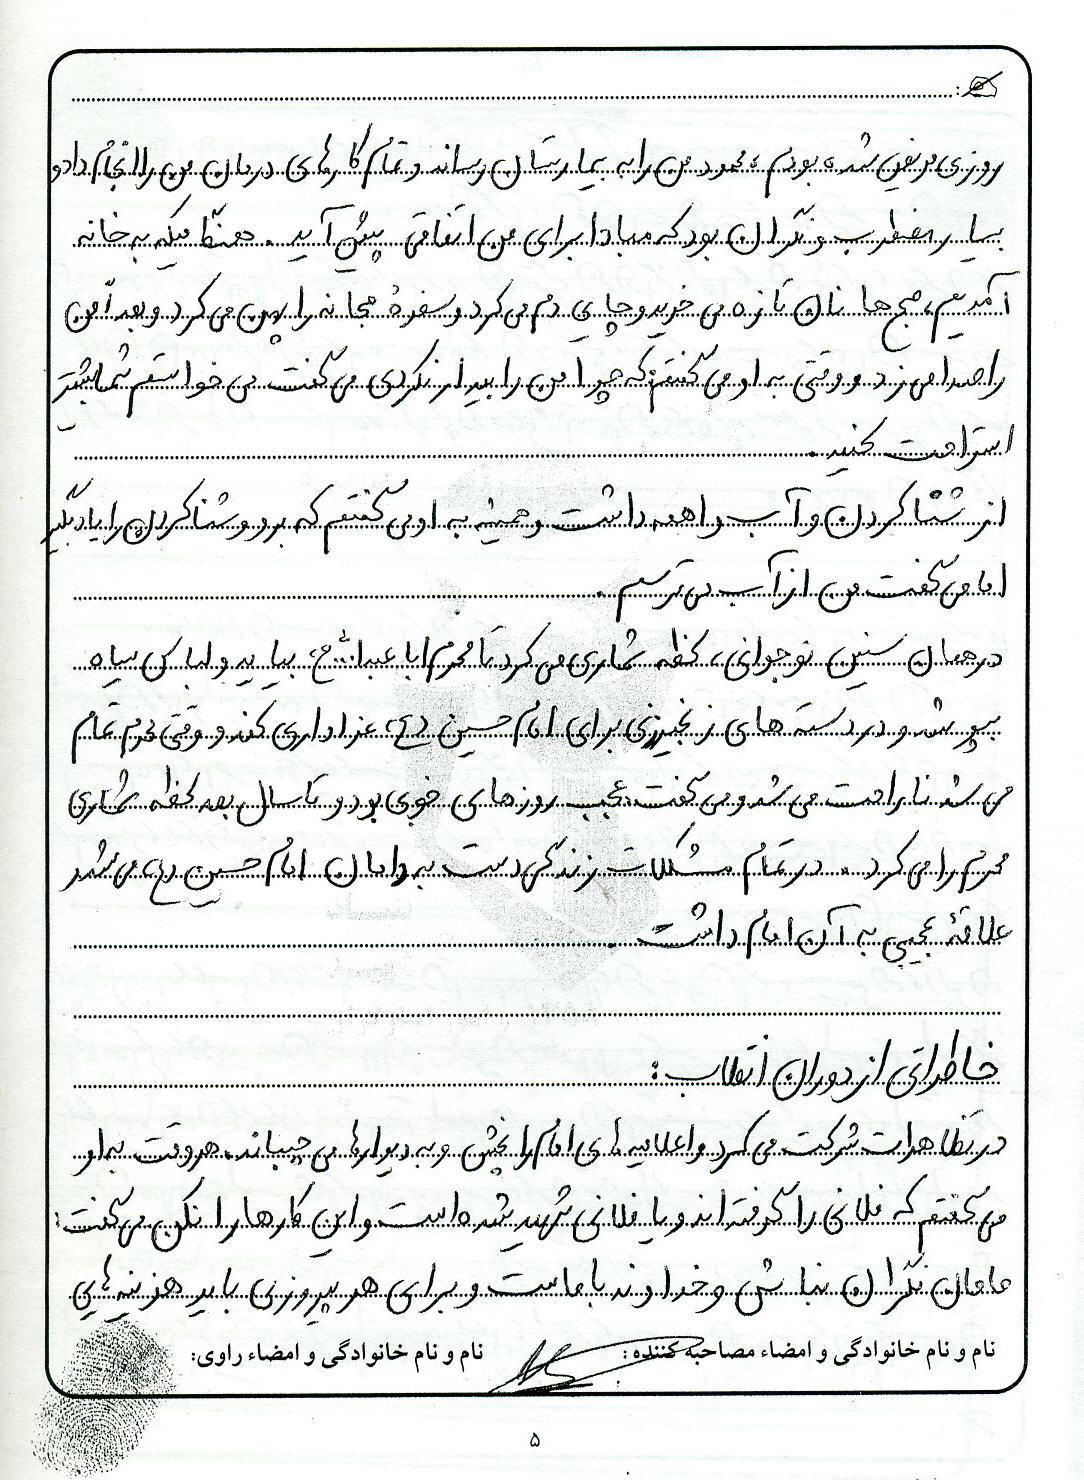 روزی مریض شده بودم ، محمود من را به بیمارستان رساند و تمام کارهای درمان من را انجام داد و
بسیار مضطرب و نگران بود که مبادا برای من اتفاقی پیش آید . هنگامیکه به خانه
آمدیم، صبح ها نان تازه می خرید و چای دم می کرد و سفرهٔ صبحانه را پهن می کرد و بعداً من
را صدا می زد و وقتی به او می گفتم: که چرا من را بیدار نکردی می گفت می خواستم شما بیشتر
استراحت کنید .
از شنا کردن و آب واهمه داشت و همیشه به او می گفتم که برو و شنا کردن را یاد بگیر
اما می گفت من از آب می ترسم .
در همان سنین نوجوانی ، لحظه شماری می کرد تا محرم ابا عبدا... (ع) بیاید و لباس سیاه
بپوشد و در دسته های زنجیرزنی برای امام حسین (ع) عزاداری کند و وقتی محرم تمام
می شد ناراحت می شد و می گفت: عجب روزهای خوبی بود و تا سال بعد لحظه شماری
محرم را می کرد . در تمام مشکلات زندگی دست به دامان امام حسین (ع) می شد
علاقهٔ عجیبی به آن امام داشت .
خاطراتی از دوران انقلاب :
در تظاهرات شرکت می کرد و اعلامیه های امام را پخش و به دیوارها می چسباند. هر وقت به او
می گفتم که فلانی را گرفته اند و یا فلانی شهید شده است و این کارها را نکن می گفت:
مامان نگران نباش و خداوند با ماست و برای هر پیروزی باید هزینه هایی
نام و نام خانوادگی و امضاء مصاحبه کننده: نام و نام خانوادگی و امضاء راوی:
۵